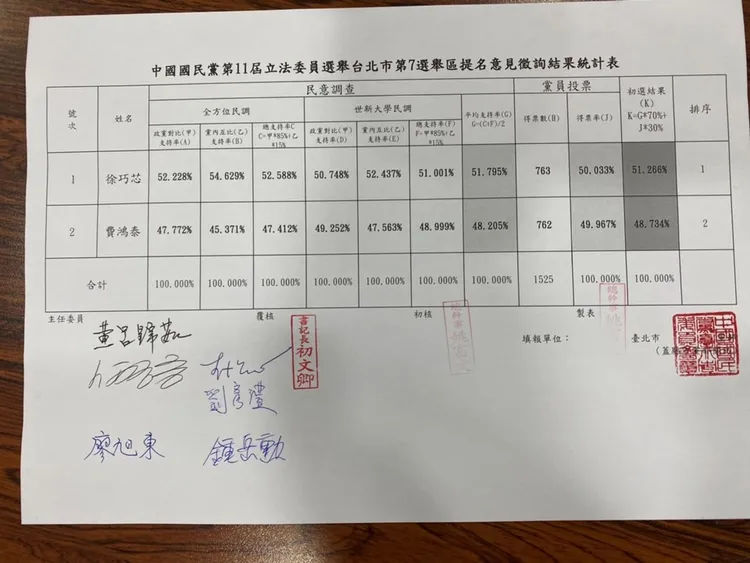 中國國民黨第11屆立法委員選舉台北市第7選舉區提名意見徵詢結果統計表
號次 姓名 民意調查 黨員投票 初選結果(K) K=G*70%+J*30% 排序
全方位民調 世新大學民調 平均支持率(G) G=(C+F)/2 得票數(H) 得票率(J)
政黨對比(甲)支持率(A) 黨內互比(乙)支持率(B) 總支持率C C=甲*85%+乙*15% 政黨對比(甲)支持率(D) 黨內互比(乙)支持率(E) 總支持率(F) F=甲*85%+乙*15%
1 徐巧芯 52.228% 54.629% 52.588% 50.748% 52.437% 51.001% 51.795% 763 50.033% 51.266% 1
2 費鴻泰 47.772% 45.371% 47.412% 49.252% 47.563% 48.999% 48.205% 762 49.967% 48.734% 2
合計 100.000% 100.000% 100.000% 100.000% 100.000% 100.000% 100.000% 1525 100.000% 100.000%
主任委員 覆核 初核 製表
書記長 初文卿
填報單位： 臺北市
劉彥澧
廖旭東 鍾岳勳